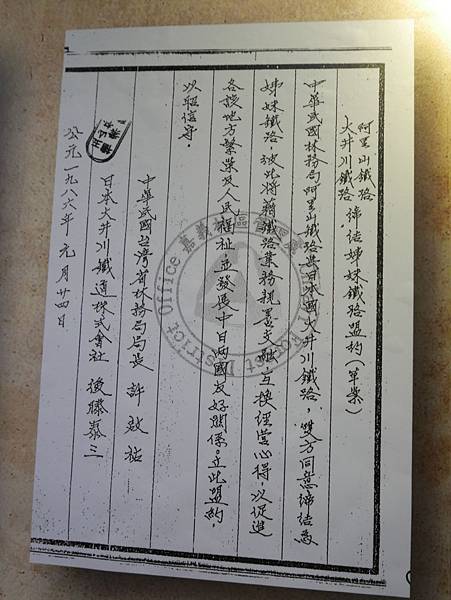 阿里山鐵路
大井川鐵路 締結姊妹鐵路盟約(草案)
中華民國林務局阿里山鐵路與日本國大井川鐵路，雙方同意締結為
姊妹鐵路，彼此將藉鐵路業務親善交融，互換經營心得，以促進
各該地方繁榮及人民福祉，並發展中日兩國友好關係。立此盟約，
以昭信守。
中華民國台灣省林務局局長 許啟祐
日本大井川鐵道株式會社 後藤泰三
公元一九八六年元月廿四日
嘉義林區管理處
Forest District Office